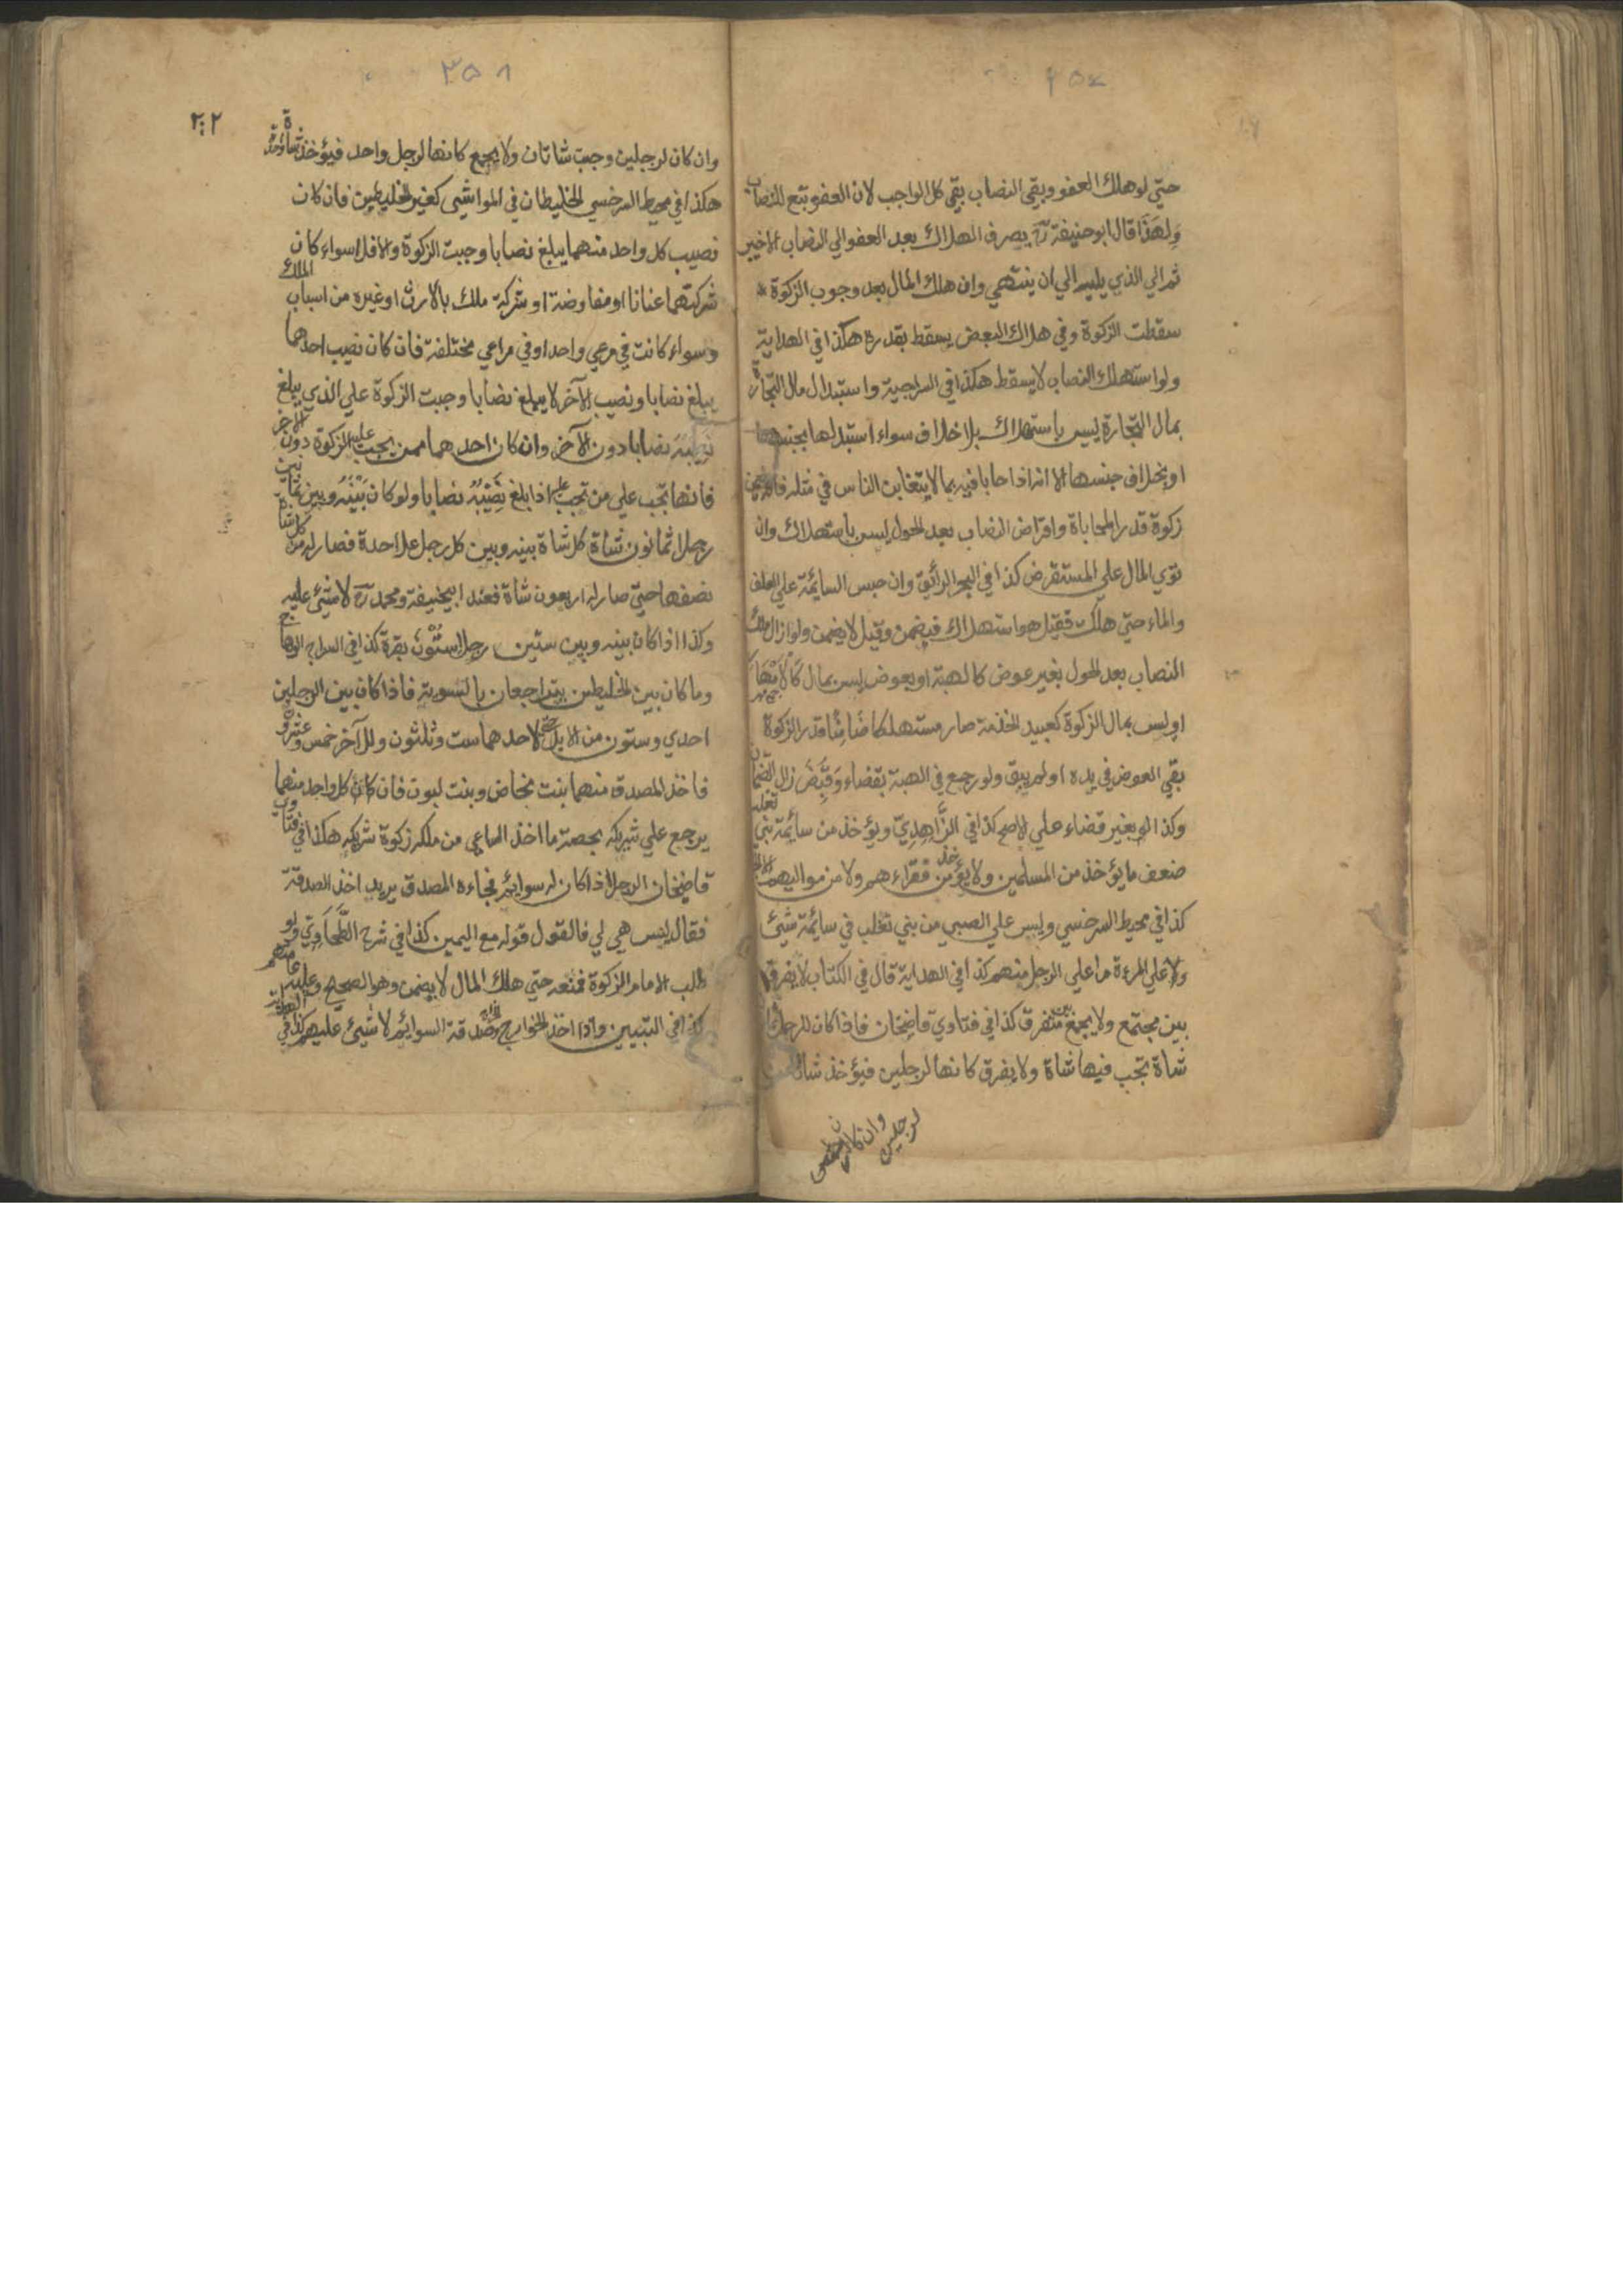 حتي لو هلك العفو وبقي النصاب بقي كل الواجب لان العفو تبع للنصاب
ولهذا قال ابو حنيفة رح يصرف الهلاك بعد العفو الي النصاب الاخير
ثم الي الذي يليه الي ان ينتهي وان هلك المال بعد وجوب الزكوة
سقطت الزكوة وفي هلاك البعض يسقط بقدره هكذا في الهداية
ولو استهلك النصاب لا يسقط هكذا في السراجية واستبدال مال التجارة
بمال التجارة ليس باستهلاك بلا خلاف سواء استبدلها بجنسها
او بخلاف جنسها الا انه اذا حابا فيه بما لا يتغابن الناس في مثله
زكوة قدر المحاباة واقراض النصاب بعد الحول ليس باستهلاك وان
توي المال علي المستقرض كذا في البحر الرائق وان حبس السايمة علي العلف
والماء حتي هلك فقيل هو استهلاك فيضمن وقيل لا يضمن ولو ازال ملك
النصاب بعد الحول بغير عوض كالهبة او بعوض ليس بمال كالامهار
او ليس بمال الزكوة كعبيد الخدمة صار مستهلكا ضامنا قدر الزكوة
بقي العوض في يده او لم يبق ولو رجع في الهبة بقضاء وقبض زال الضمان
وكذا لو بغير قضاء علي الاصح كذا في الزاهدي ويؤخذ من سائمة بني تغلب
ضعف ما يؤخذ من المسلمين ولا يؤخذ من فقراءهم ولا من مواليهم
كذا في محيط السرخسي وليس علي الصبي من بني تغلب في سائمة شيئ
ولا علي المرءة ما علي الرجل منهم كذا في الهداية قال في الكتاب لا يفرق
بين مجتمع ولا يجمع بين متفرق كذا في فتاوي قاضيخان فاذا كان للرجل
شاة تجب فيها شاة ولا يفرق كانها لرجلين فيؤخذ شاتان
وان كان
لرجلين
٣٥٨
٢٠٢
وان كان لرجلين وجبت شاتان ولا يجمع كانها لرجل واحد فيؤخذ شاة واحدة
هكذا في محيط السرخسي الخليطان في المواشي كغير الخليطين فان كان
نصيب كل واحد منهما يبلغ نصابا وجبت الزكوة والا فلا سواء كان
شركتهما عنانا او مفاوضة او شركة ملك بالارث او غيره من اسباب الملك
وسواء كانت في مرعي واحد او في مراعي مختلفة فان كان نصيب احدهما
يبلغ نصابا ونصيب الآخر لا يبلغ نصابا وجبت الزكوة علي الذي يبلغ
نصيبه نصابا دون الآخر وان كان احدهما ممن يجب عليه الزكوة دون الآخر
فانها تجب علي من تجب عليه اذا بلغ نصيبه نصابا ولو كان بينه وبين ثمانين
رجلا ثمانون شاة كل شاة بينه وبين كل رجل علاحدة فصار له من كل شاة
نصفها حتي صار له اربعون شاة فعند ابيحنيفة ومحمد رح لا شيئ عليه
وكذا اذا كان بينه وبين ستين رجلا ستون بقرة كذا في السراج الوهاج
وما كان بين الخليطين يتراجعان بالتسوية فاذا كان بين الرجلين
احدي وستون من الابل لاحدهما ست وثلثون وللآخر خمس وعشرون
فاخذ المصدق منهما بنت مخاض وبنت لبون فان كان كل واحد منهما
يرجع علي شريكه بحصة ما اخذ الساعي من ملكه زكوة شريكه هكذا في فتاوي
قاضيخان الرجل اذا كان له سوايم فجاءه المصدق يريد اخذ الصدقة
فقال ليس هي لي فالقول قوله مع اليمين كذا في شرح الطحاوي ولو
طلب الامام الزكوة فمنعه حتي هلك المال لا يضمن وهو الصحيح وعليه عامتهم
كذا في التبيين واذا اخذ الخوارج الخراج وصدقة السوايم لا شيئ عليهم كذا في الهداية